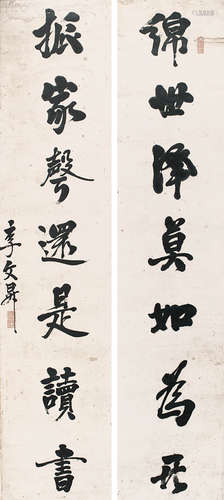 綿世澤莫如為善
振家聲還是讀書
李文昇